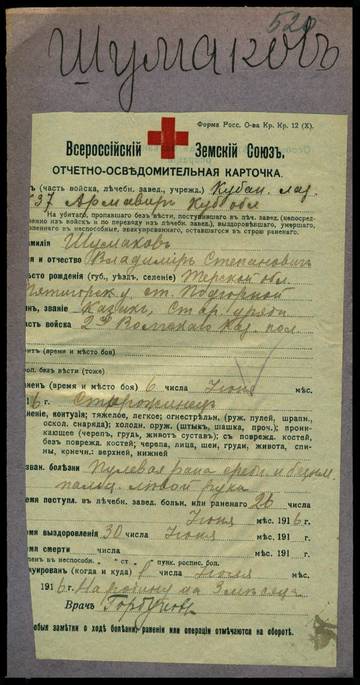 520
Шумаковъ
Форма Росс. О-ва Кр. Кр. 12 (X).
Всероссійскій Земскій Союзъ.
ОТЧЕТНО-ОСВѢДОМИТЕЛЬНАЯ КАРТОЧКА.
(часть войска, лѣчебн. завед., учрежд.) Кубан. лаз.
37 Армавиръ Куб обл
На убитаго, пропавшаго безъ вѣсти, поступившаго въ лѣч. завед. (непосред-
ственно изъ войскъ и по переводу изъ лѣчебн. завед.), выздоровѣвшаго, умершаго,
уволеннаго въ неспособные, эвакуированнаго, оставшагося въ строю раненаго.
амилія Шумаковъ
я и отчество Владиміръ Степановичъ
сто рожденія (губ., уѣздъ, селеніе) Терской обл.
Пятигорск. у. ст. Подгорной
нъ, званіе Казакъ, Стар. уряд
асть войска 2й Волгскаго Каз. пол.
ит (время и мѣсто боя)
оп. безъ вѣсти (тоже)
нен (время и мѣсто боя) 6 числа Іюня мѣс.
6 г. Сторожинецъ
неніе, контузія: тяжелое, легкое; огнестрѣльн. (руж. пулей, шрапн.,
оскол. снаряда); холодн. оруж. (штыкъ, шашка, проч.); прони-
кающее (черепъ, грудь, животъ, суставъ); съ поврежд. костей,
безъ поврежд. костей; черепа, лица, шеи, груди, живота, спи-
ны, конечн.: верхней, нижней
зван. болѣзни Пулевая рана средн. и безым.
пальц. лѣвой руки
емя поступл. въ лѣчебн. завед. больн. или раненаго 26 числа
Іюня мѣс. 1916 г.
мя выздоровленія 30 числа Іюня мѣс.
мя смерти числа мѣс.
лен въ неспособн. „ ст. пунк. роспис. бол.
куирован (когда и куда) числа Іюля мѣс.
1916 г. На родину на 3 мѣсяца
Врачъ
обыя замѣтки о ходѣ болѣзни, раненія или операціи отмѣчаются на оборотѣ.